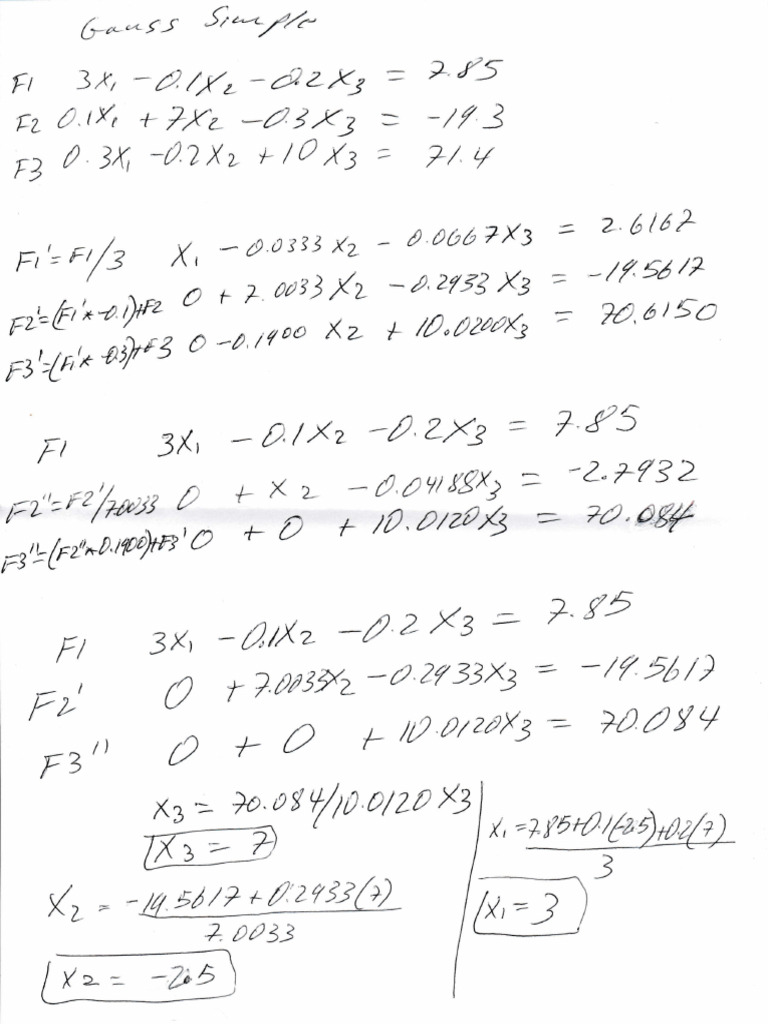 Gauss Simple
F1 3X1 - 0.1X2 - 0.2X3 = 7.85
F2 0.1X1 + 7X2 - 0.3X3 = -19.3
F3 0.3X1 - 0.2X2 + 10X3 = 71.4
F1' = F1/3 X1 - 0.0333X2 - 0.0667X3 = 2.6167
F2' = (F1' * -0.1) + F2 0 + 7.0033X2 - 0.2933X3 = -19.5617
F3' = (F1' * -0.3) + F3 0 - 0.1900X2 + 10.0200X3 = 70.6150
F1 3X1 - 0.1X2 - 0.2X3 = 7.85
F2'' = F2'/7.0033 0 + X2 - 0.04188X3 = -2.7932
F3'' = (F2'' * 0.1900) + F3' 0 + 0 + 10.0120X3 = 70.084
F1 3X1 - 0.1X2 - 0.2X3 = 7.85
F2' 0 + 7.0033X2 - 0.2933X3 = -19.5617
F3'' 0 + 0 + 10.0120X3 = 70.084
X3 = 70.084/10.0120X3
X3 = 7
X2 = -19.5617 + 0.2933(7)
7.0033
X2 = -2.5
X1 = 7.85 + 0.1(-2.5) + 0.2(7)
3
X1 = 3